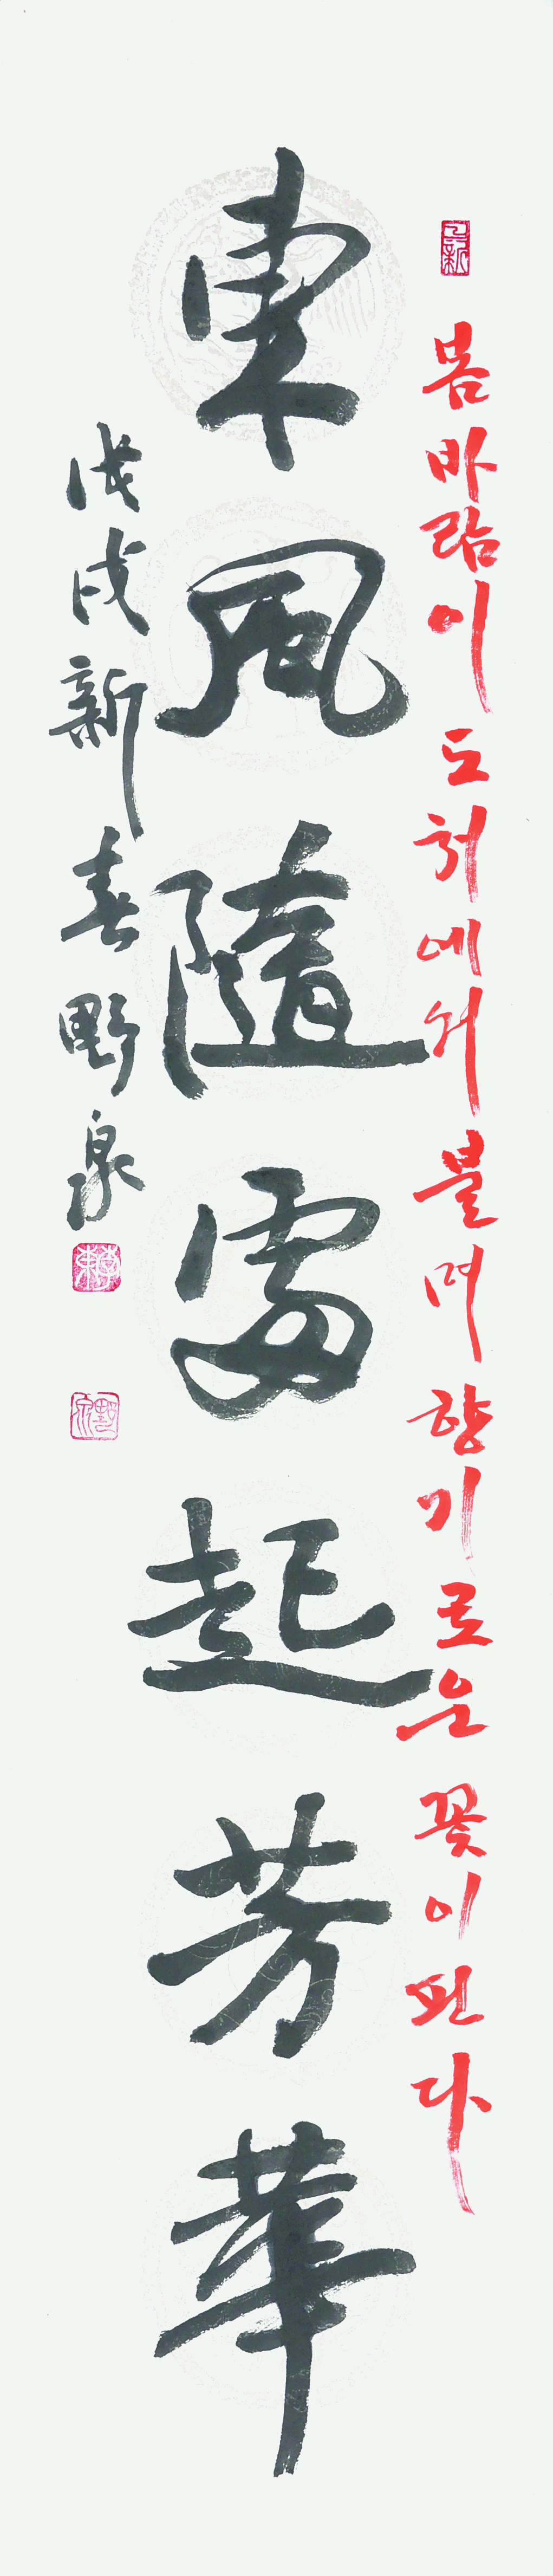 봄바람이 도처에서 불며 향기로운 꽃이 핀다
東風隨處起芳華
戊戌新春 野泉